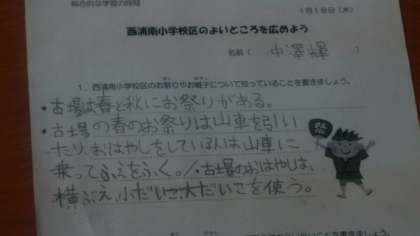 総合的な学習の時間
1月18日(木)
西浦南小学校区のよいところを広めよう
名前( 中澤輝 )
1.西浦南小学校区のお祭りやお囃子について知っていることを書きましょう。
・古場は春と秋にお祭りがある。
・古場の春のお祭りは山車を引い
たり、おはやしをしている人は山車に
乗ってふえをふく。/・古場のおはやしは、
横ぶえ、小だいこ、大だいこを使う。